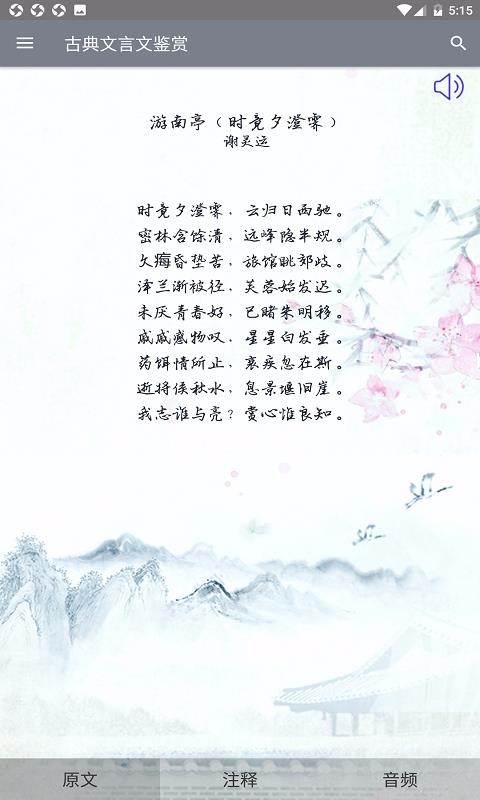 5:15
古典文言文鉴赏
游南亭（时竟夕澄霁）
谢灵运
时竟夕澄霁，云归日西驰。
密林含馀清，远峰隐半规。
久痗昏垫苦，旅馆眺郊歧。
泽兰渐被径，芙蓉始发迟。
未厌青春好，已睹朱明移。
戚戚感物叹，星星白发垂。
药饵情所止，衰疾忽在斯。
逝将候秋水，息景偃旧崖。
我志谁与亮？赏心惟良知。
原文
注释
音频